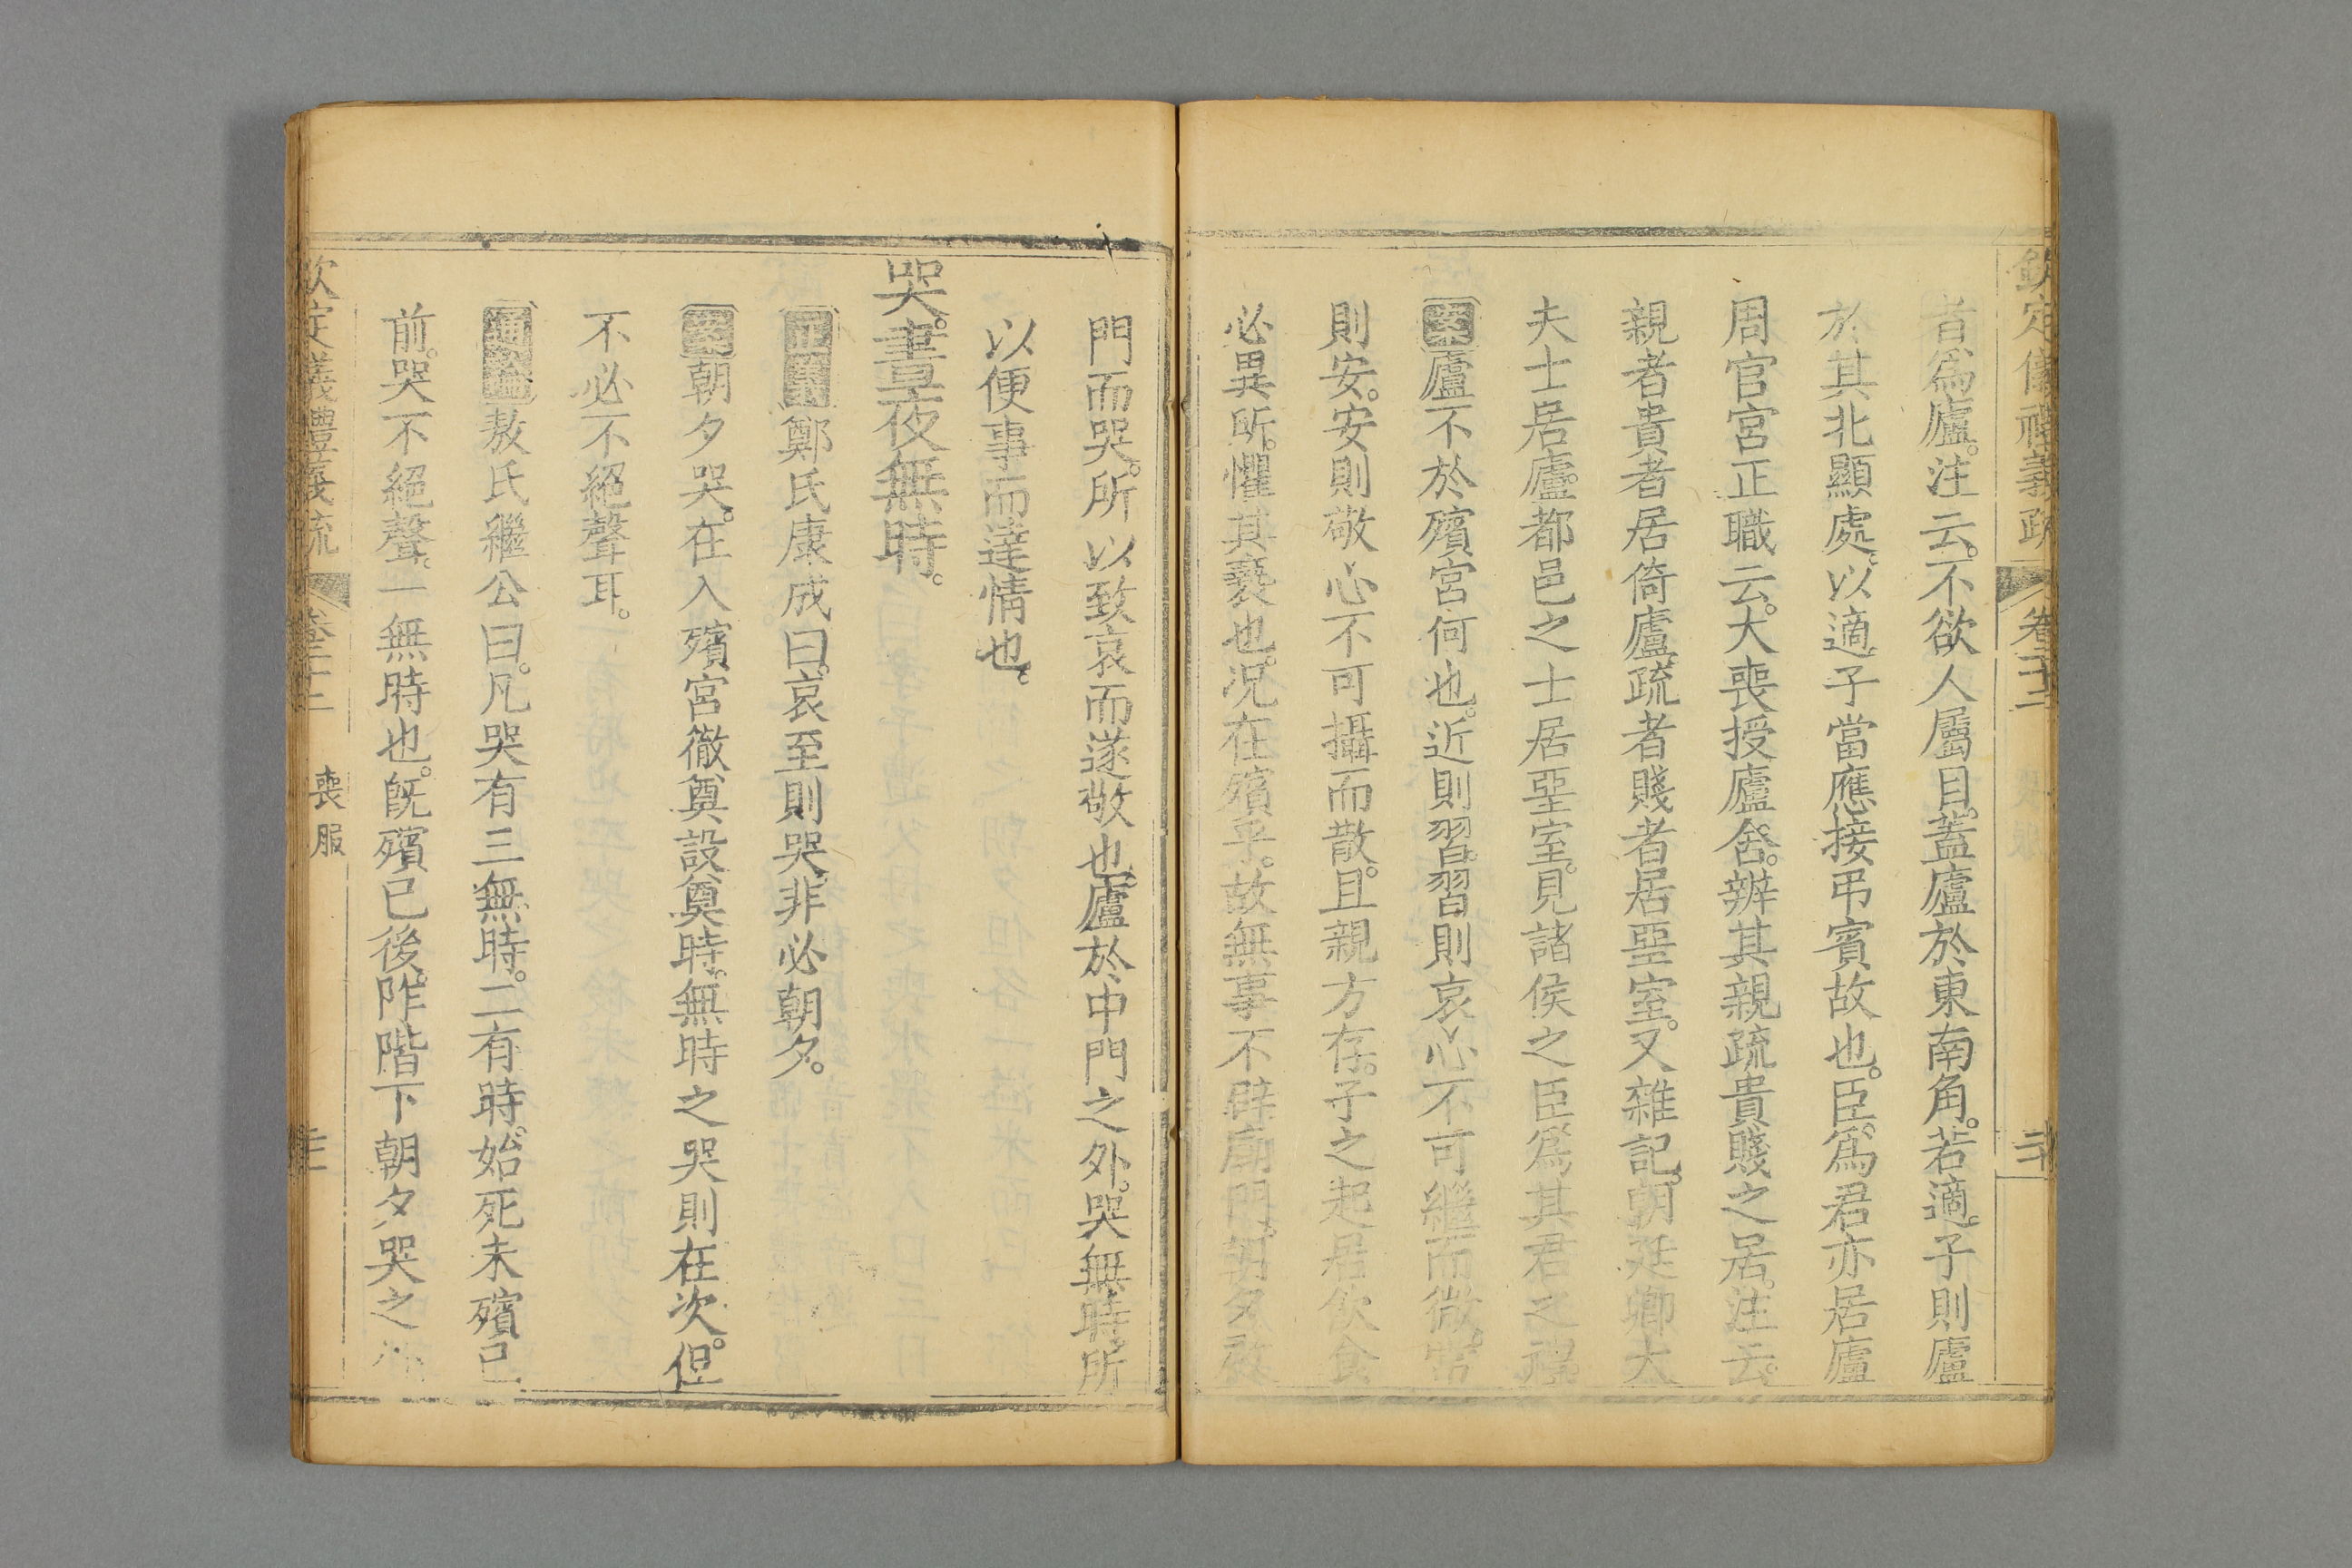 欽定儀禮義疏 卷二十二 二十
者爲廬。注云。不欲人屬目。蓋廬於東南角。若適子則廬
於其北顯處。以適子當應接弔賓故也。臣爲君亦居廬
周官宮正職云。大喪授廬舍。辨其親疏貴賤之居。注云。
親者貴者居倚廬。疏者賤者居堊室。又雜記。朝廷卿大
夫士居廬。都邑之士居堊室。見諸侯之臣爲其君之禮
案廬不於殯宮何也。近則習。習則哀心不可繼而微。常
則安。安則敬心不可攝而散。且親方存。子之起居飲食
必異所。懼其褻也。况在殯乎。故無事不辟廟門。朝夕啟
門而哭。所以致哀而遂敬也。廬於中門之外。哭無時。所
以便事而達情也。
哭。晝夜無時。
正義鄭氏康成曰。哀至則哭。非必朝夕。
案朝夕哭。在入殯宮徹奠設奠時。無時之哭則在次。但
不必不絕聲耳。
通論敖氏繼公曰。凡哭有三無時。二有時。始死未殯已
前。哭不絕聲。一無時也。旣殯已後。阼階下朝夕哭之
欽定儀禮義疏 卷二十二 喪服 二十一